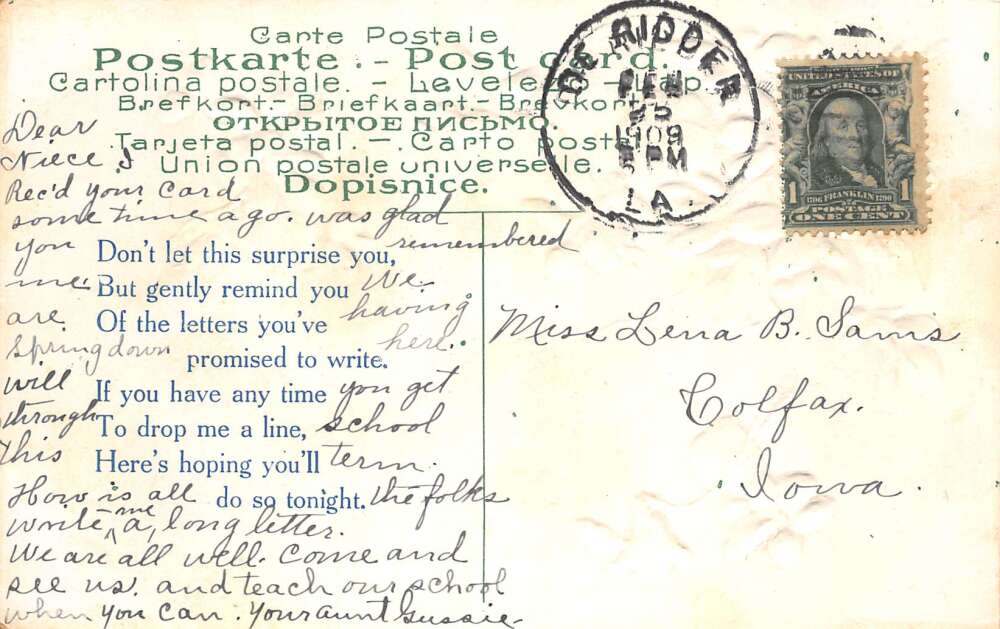 Carte Postale
Postkarte. - Post card.
Cartolina postale. - Levelező - Lap.
Brefkort.- Briefkaart.- Brevkort
ОТКРЫТОЕ ПИСЬМО.
Tarjeta postal. - Carto postal
Union postale universelle.
Dopisnice.
DE RIDDER
FEB
25
1909
PM
LA.
UNITED STATES OF
AMERICA
1 1
1706 FRANKLIN 1790
POSTAGE
ONE CENT
Dear
Niece I
Rec'd your card
some time ago. was glad
you remembered
me. We
are having
Spring down here.
will you get
through school
this term.
How is all the folks
write me a long letter.
We are all well. Come and
see us. and teach our school
when you can. Your aunt Gussie
Don't let this surprise you,
But gently remind you
Of the letters you've
promised to write.
If you have any time
To drop me a line,
Here's hoping you'll
do so tonight.
Miss Lena B. Sams
Colfax.
Iowa.